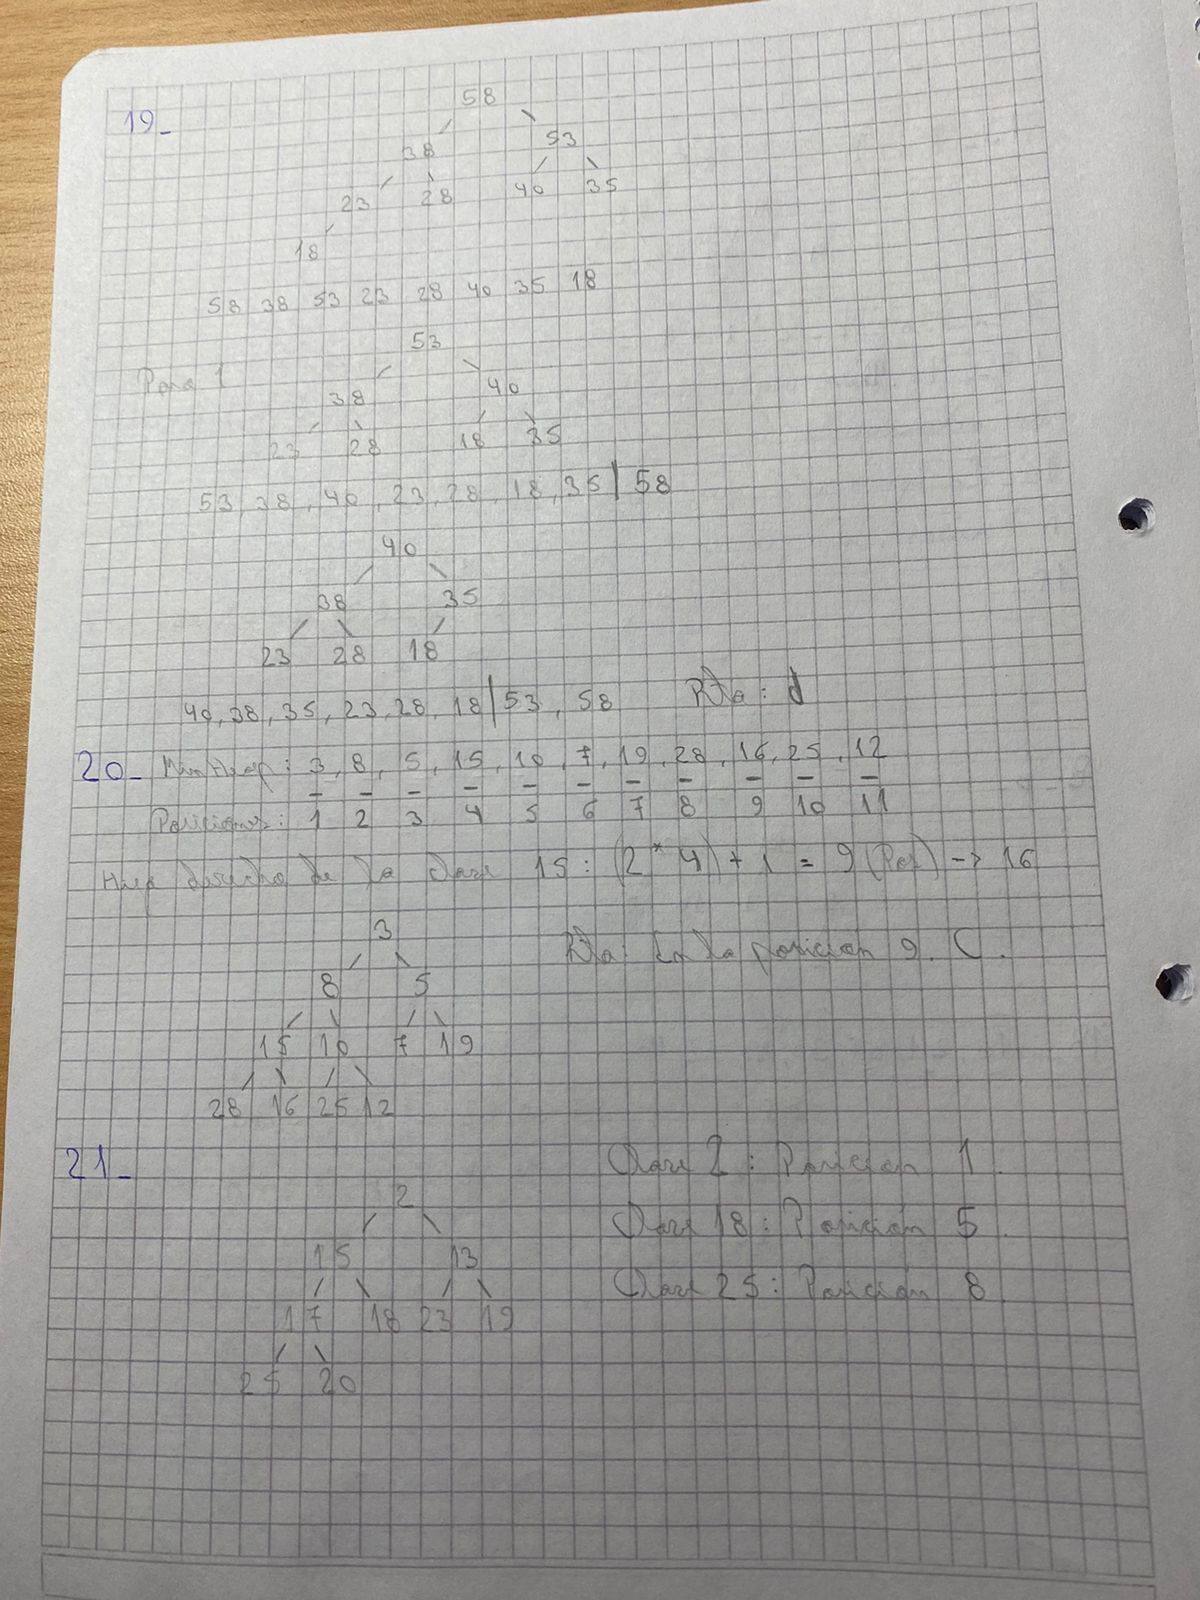 19_
58
38 53
23 28 40 35
18
58 38 53 23 28 40 35 18
53
Paso 1
38 40
23 28 18 35
53, 38, 40, 23, 28, 18, 35 | 58
40
38 35
23 28 18
40, 38, 35, 23, 28, 18 | 53, 58 Rta: d
20_ Min Heap: 3, 8, 5, 15, 10, 7, 19, 28, 16, 25, 12
Posiciones: 1 2 3 4 5 6 7 8 9 10 11
Hijo derecho de la clave 15: (2 * 4) + 1 = 9 (Pos) -> 16
3
Rta: En la posición 9. C.
8 5
15 10 7 19
28 16 25 12
21_
Clave 2: Posición 1.
2
Clave 18: Posición 5.
15 13
Clave 25: Posición 8
17 18 23 19
25 20